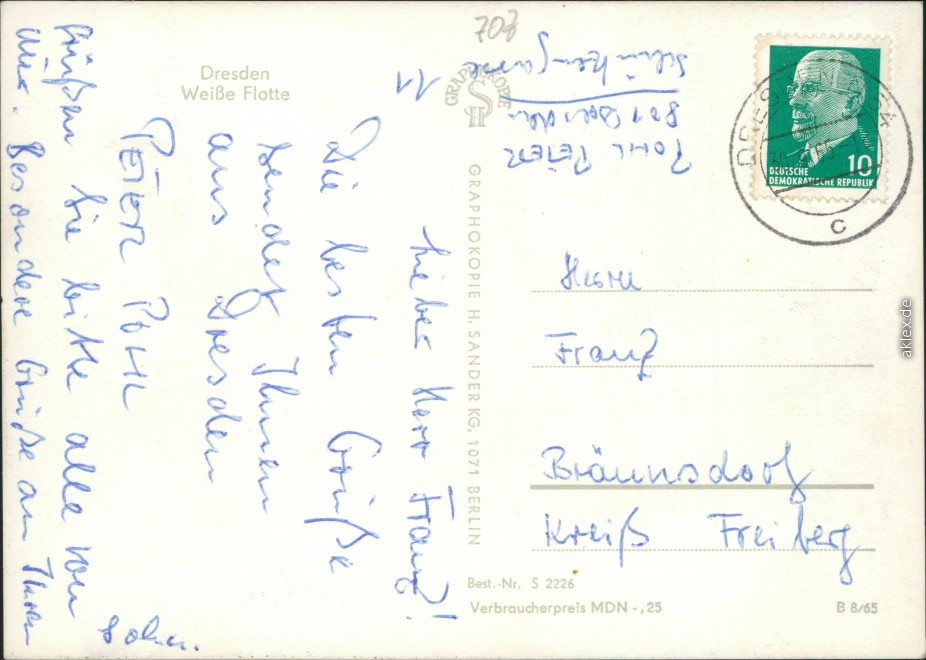 Dresden
Weiße Flotte
Lieber Herr Franz!
Die besten Grüße
sendet Ihnen
aus Dresden
PETER POHL
Grüßen Sie bitte alle von
mir. Besondere Grüße an Ihren
Sohn.
GRAPHOKOPIE
SH
GRAPHOKOPIE H. SANDER KG, 1071 BERLIN
POHL PETER
801 Dresden
Schützengasse
11
70
DEUTSCHE
DEMOKRATISCHE REPUBLIK
10
DRESDEN
C
Herrn
Franz
Bräunsdorf
Kreiß Freiberg
Best.-Nr. S 2226
Verbraucherpreis MDN -,25
B 8/65
aklex.de